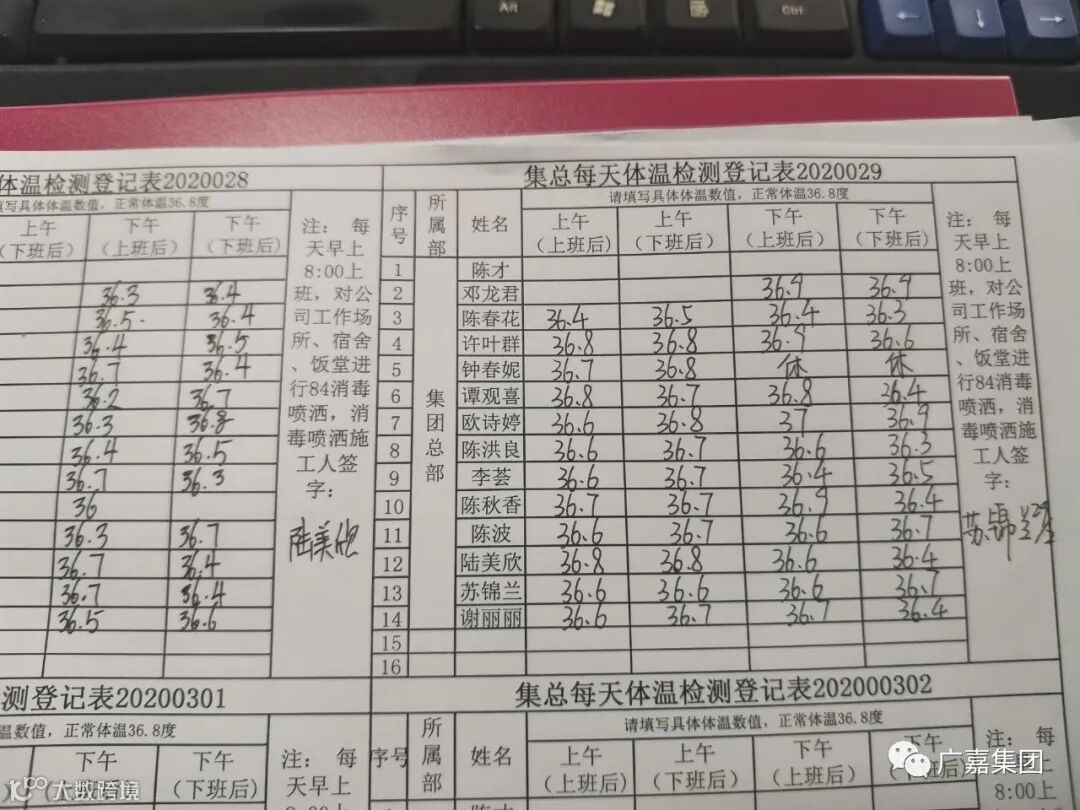 Alt
Ctrl
体温检测登记表2020028
填写具体体温数值，正常体温36.8度
上午
（下班后）
下午
（上班后）
下午
（下班后）
36.3 36.4
36.5 36.4
36.4 36.5
36.7 36.4
36.2 36.7
36.3 36.8
36.4 36.5
36.7 36.3
36
36.3 36.7
36.7 36.4
36.7 36.4
36.5 36.6
注： 每
天早上
8:00上
班，对公
司工作场
所、宿舍
、饭堂进
行84消毒
喷洒，消
毒喷洒施
工人签
字：
陆美欣
集总每天体温检测登记表2020029
请填写具体体温数值，正常体温36.8度
序号
所属部
姓名
上午
（上班后）
上午
（下班后）
下午
（上班后）
下午
（下班后）
集团总部
1 陈才
2 邓龙君 36.9 36.9
3 陈春花 36.4 36.5 36.4 36.3
4 许叶群 36.8 36.8 36.9 36.6
5 钟春妮 36.7 36.8 休 休
6 谭观喜 36.8 36.7 36.8 36.4
7 欧诗婷 36.6 36.8 37 36.9
8 陈洪良 36.6 36.7 36.6 36.3
9 李荟 36.6 36.7 36.4 36.5
10 陈秋香 36.7 36.7 36.9 36.4
11 陈波 36.6 36.7 36.6 36.7
12 陆美欣 36.8 36.8 36.6 36.4
13 苏锦兰 36.6 36.6 36.6 36.7
14 谢丽丽 36.6 36.7 36.7 36.4
15
16
注： 每
天早上
8:00上
班，对公
司工作场
所、宿舍
、饭堂进
行84消毒
喷洒，消
毒喷洒施
工人签
字：
苏锦兰
测登记表20200301
温数值，正常体温36.8度
下午
（上班后）
下午
（下班后）
注： 每
天早上
8:00上
集总每天体温检测登记表202000302
请填写具体体温数值，正常体温36.8度
序号
所属部
姓名
上午
（上班后）
上午
（下班后）
下午
（上班后）
下午
（下班后）
注： 每
天早上
8:00上
陈才
广嘉集团
大数跨境